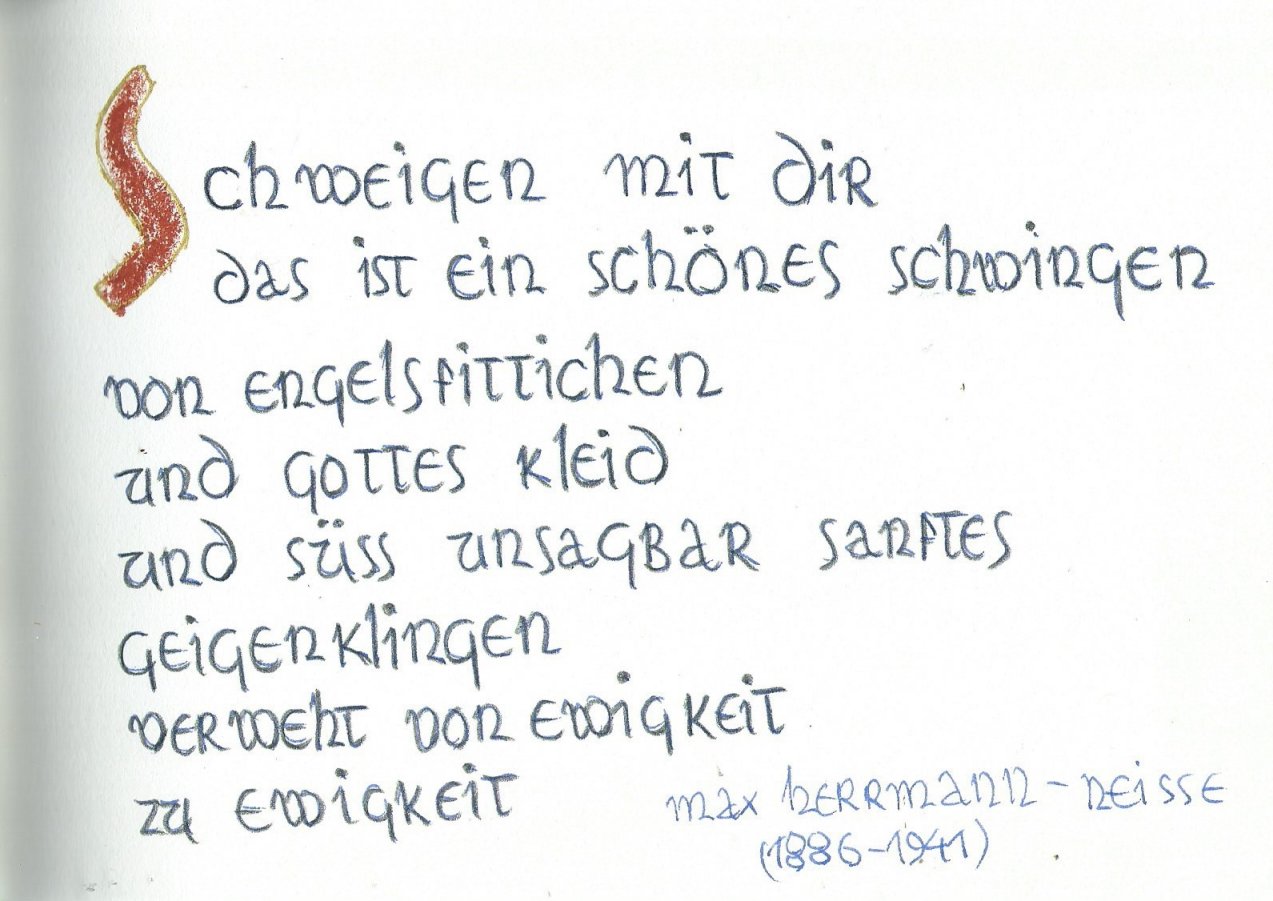 Schweigen mit dir
das ist ein schönes schwingen
von engelsfittichen
und gottes kleid
und süss unsagbar sanftes
geigenklingen
verweht von ewigkeit
zu ewigkeit
max herrmann-neisse
(1886-1941)